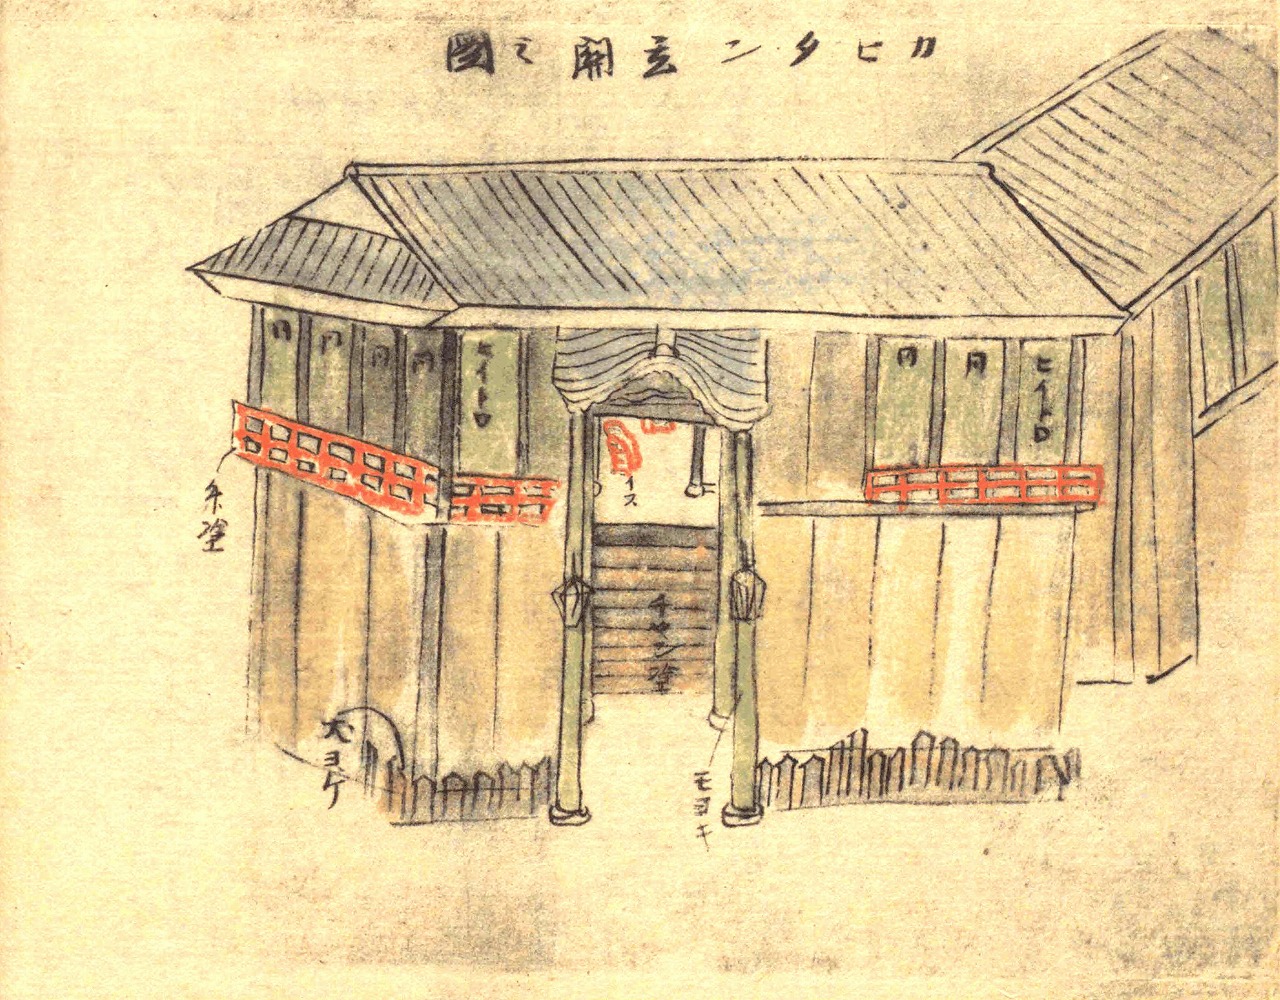 カヒタン玄関之図
ヒイトロ
同
同
ヒイトロ
同
同
同
同
朱塗
イス
チヤン塗
モヨキ
犬ヨケ